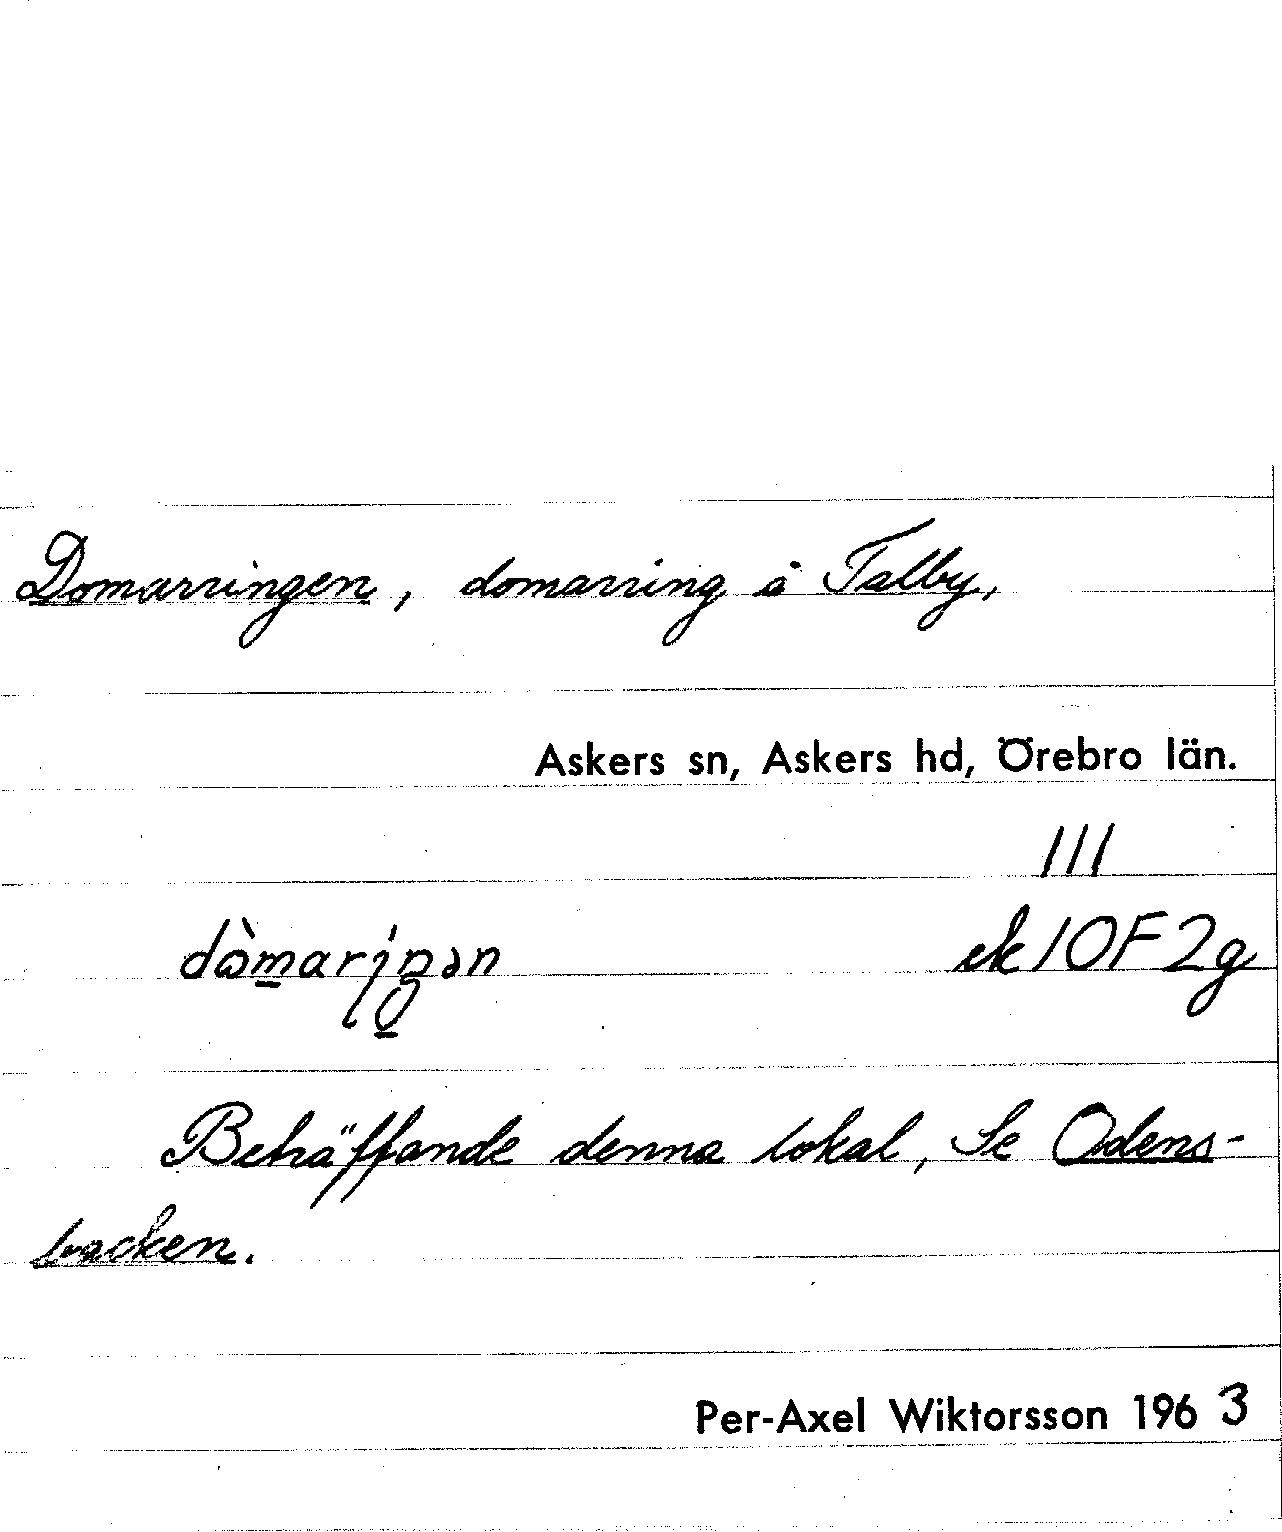 Domarringen, domarring å Talby,
Askers sn, Askers hd, Örebro län.
111
ek 10F 2g
Beträffande denna lokal, se Odens-
backen.
Per-Axel Wiktorsson 1963